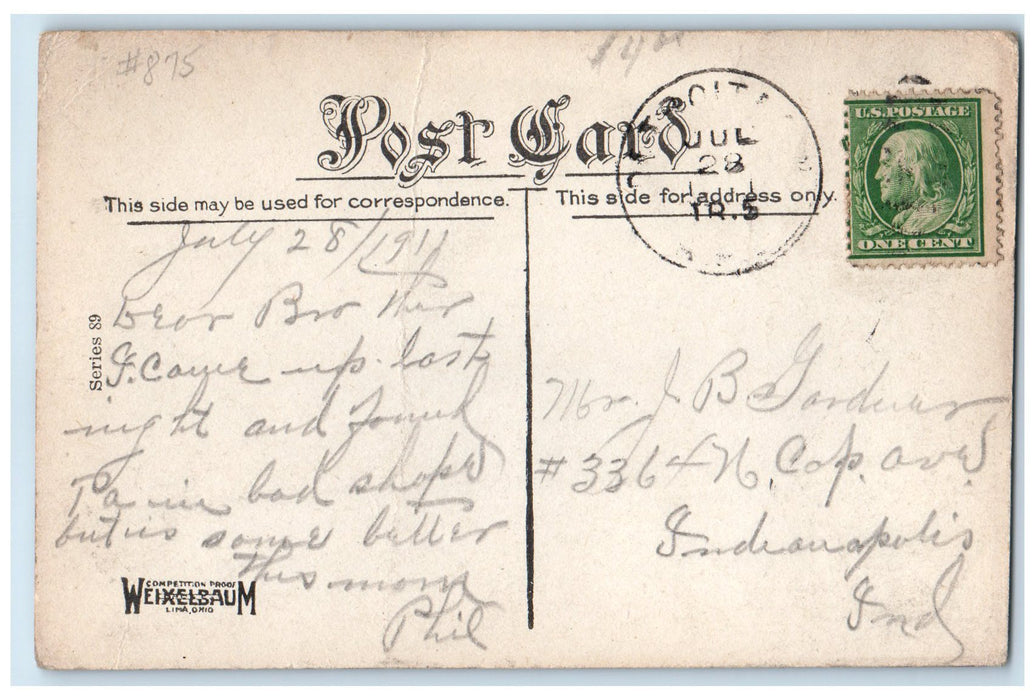 #875
Post Card
This side may be used for correspondence.
This side for address only.
JUL
28
TR.5
U.S. POSTAGE
ONE CENT
July 28/1911
Dear Brother
I came up last
night and found
Pa in bad shape
but is some better
this morn
Phil
Series 89
COMPETITION PROOF
WEIXELBAUM
LIMA, OHIO
Mr. J B Gardner
#3364 N. Cap. ave
Indianapolis
Ind